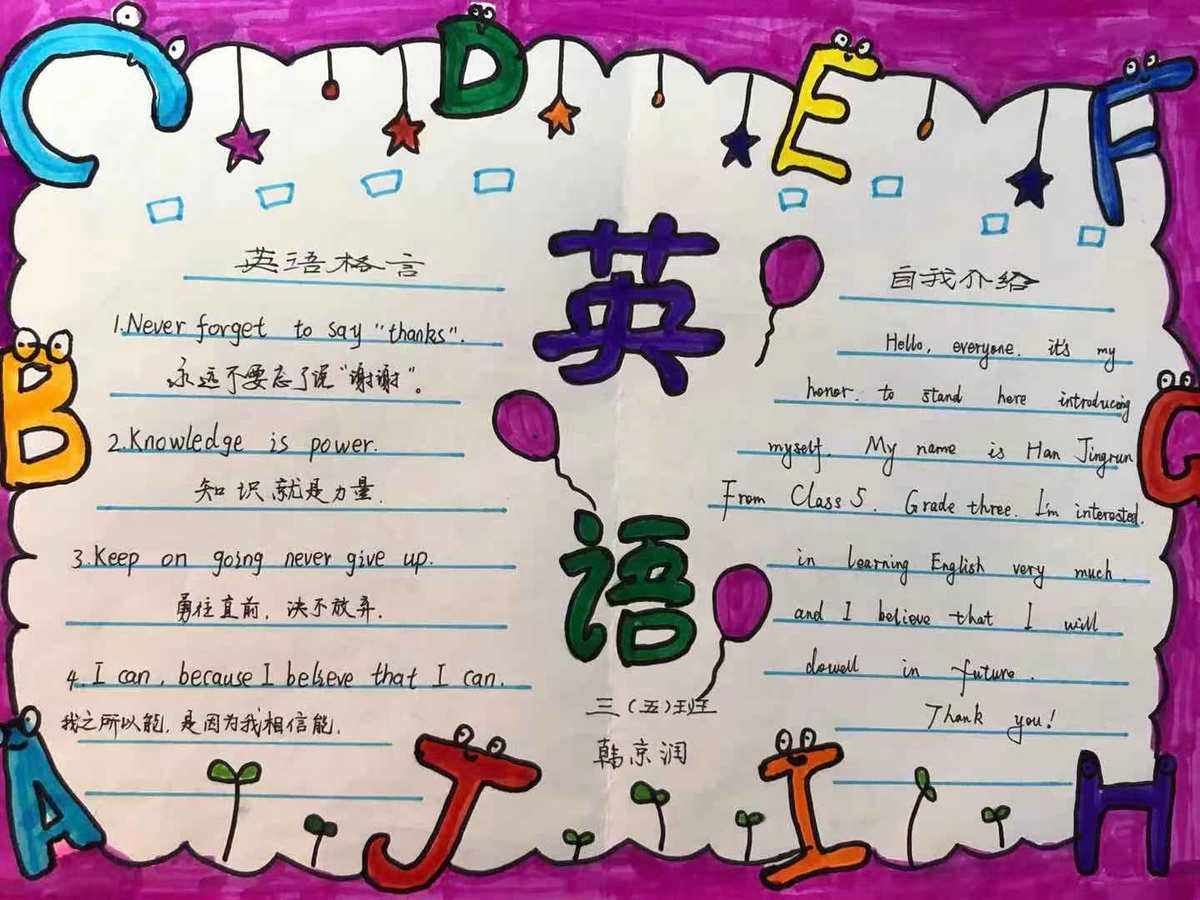 C
D
E
F
B
G
A
J
I
H
英语
三（五）班
韩京润
英语格言
1.Never forget to say "thanks".
永远不要忘了说"谢谢"。
2.Knowledge is power.
知识就是力量.
3.Keep on going never give up.
勇往直前，决不放弃.
4.I can, because I believe that I can.
我之所以能，是因为我相信能.
自我介给
Hello, everyone. it's my
honor. to stand here introducing
myself. My name is Han Jingrun
From Class 5. Grade three. I'm interested.
in learning English very much.
and I believe that I will
dowell in future.
Thank you!